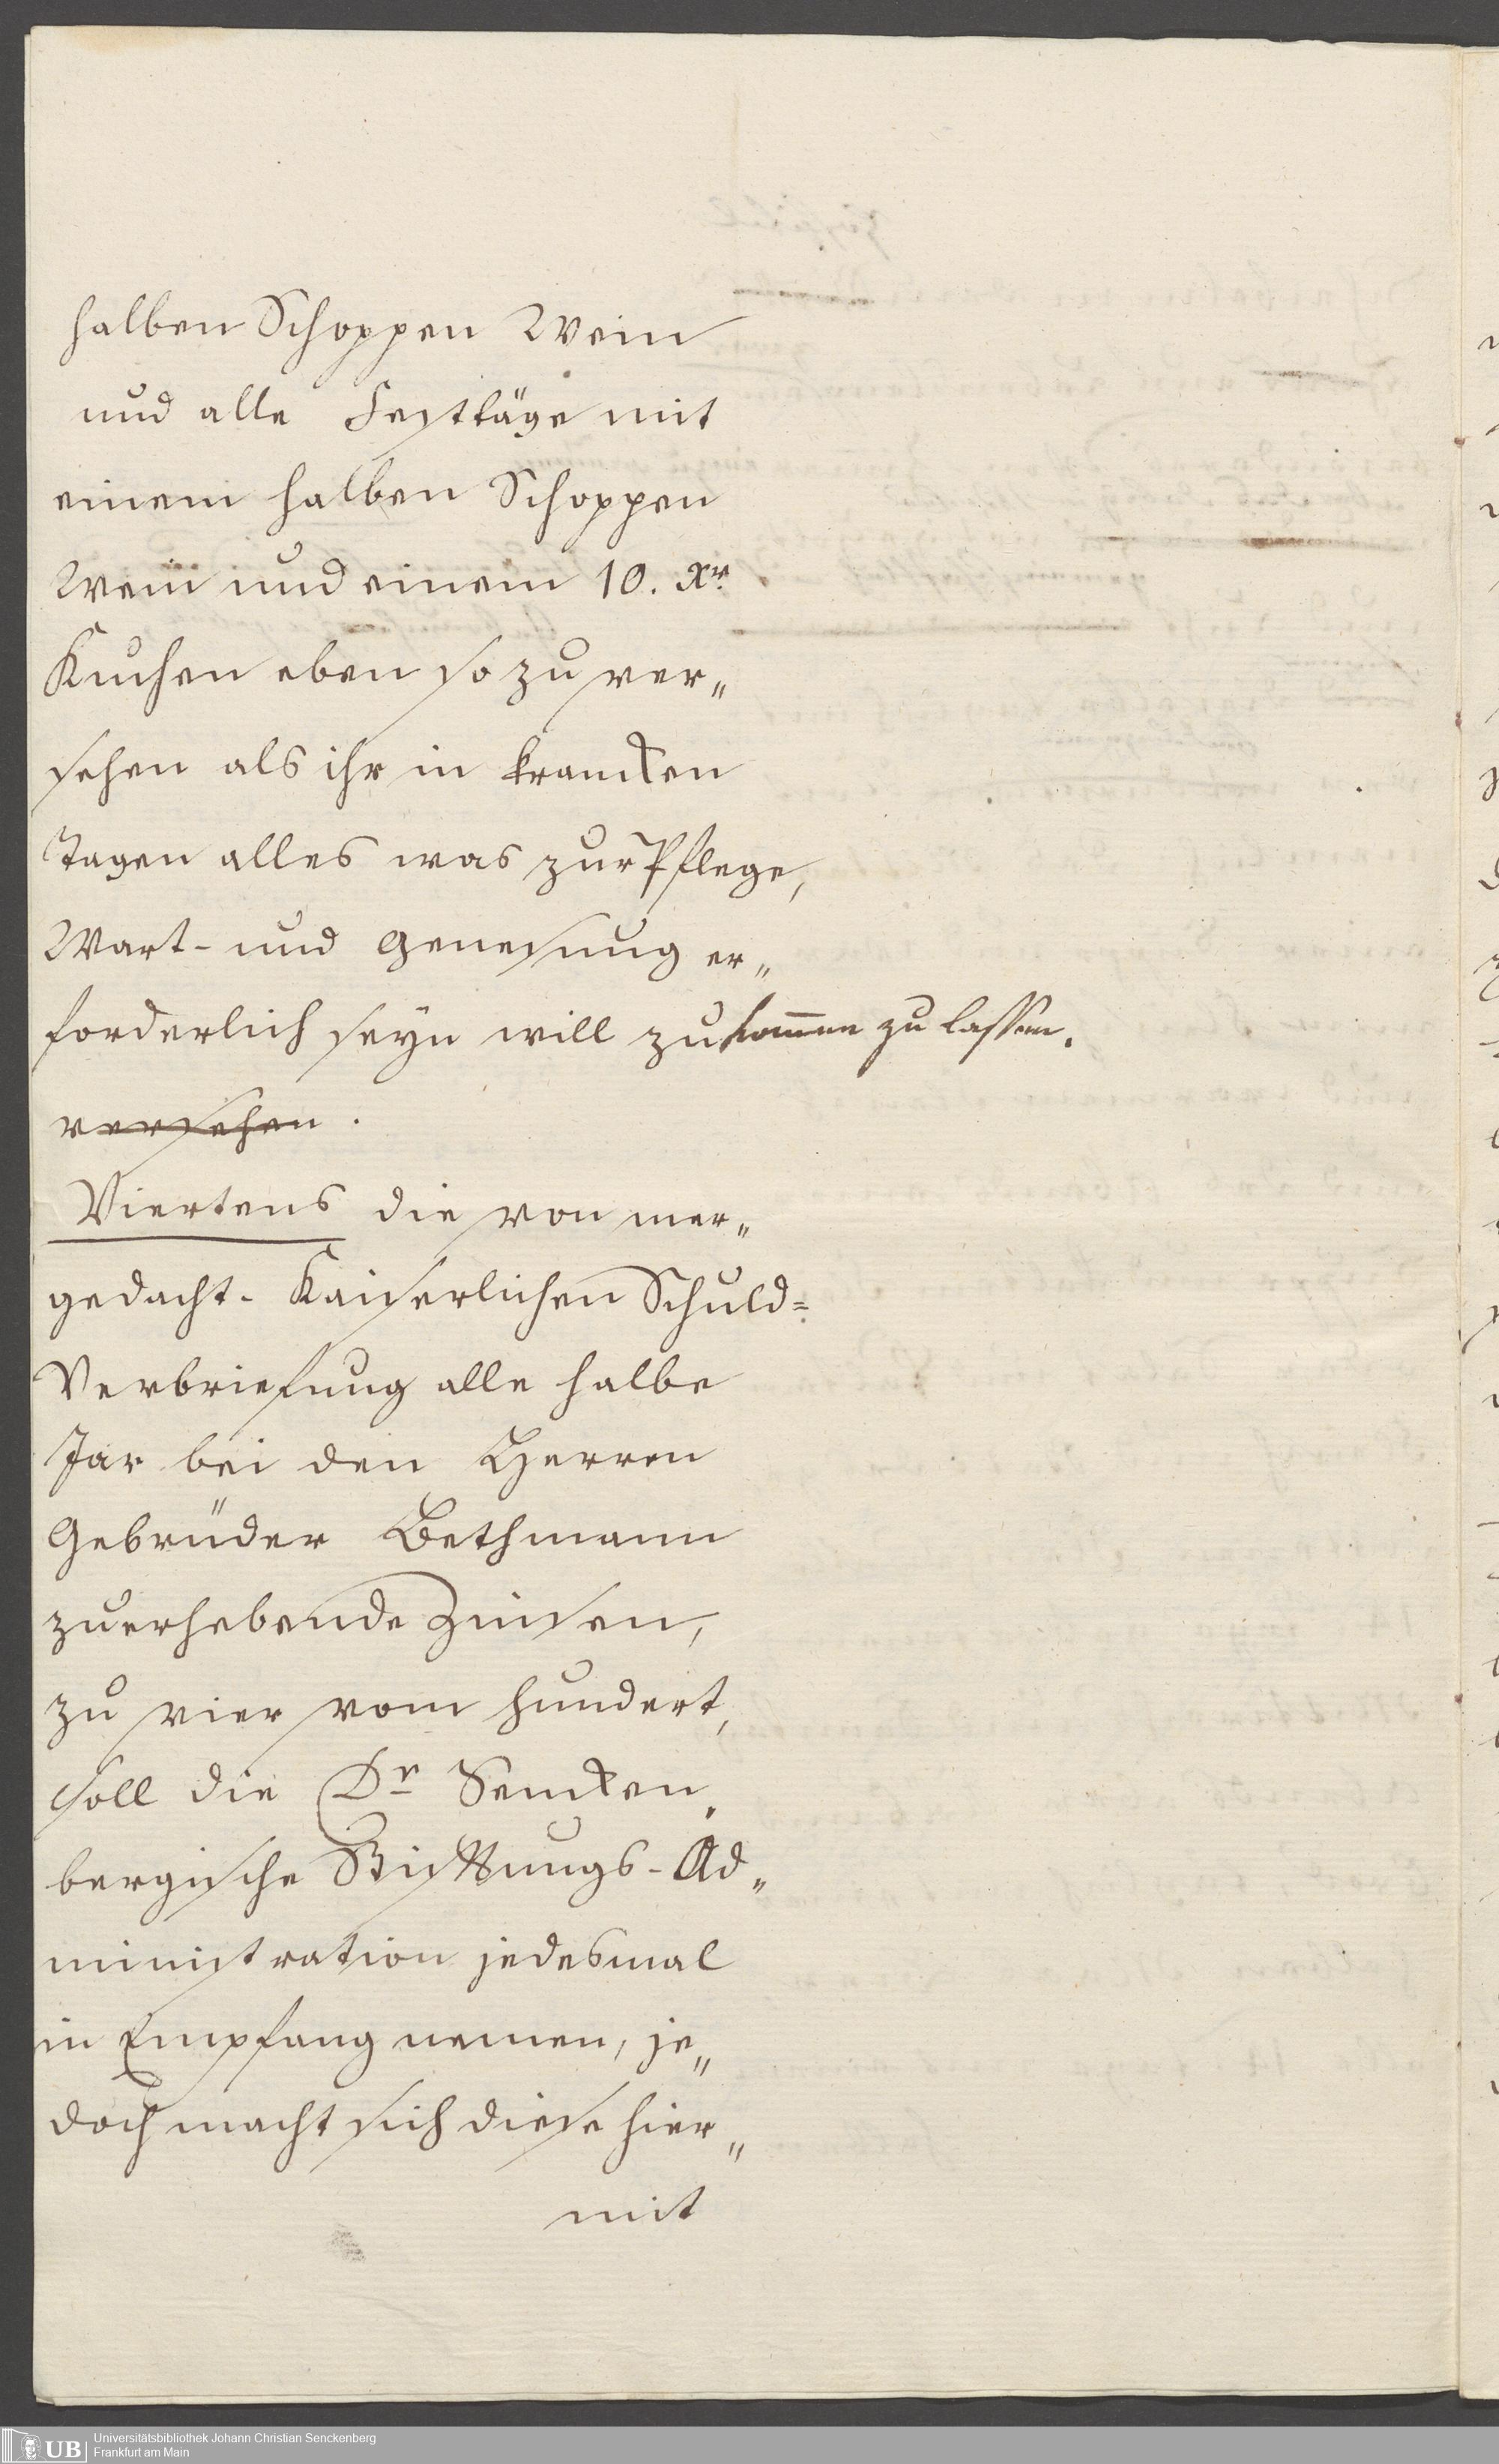 halben Schoppen Wein
und alle Festtäge mit
einem halben Schoppen
Wein und einem 10. Xr
Kuchen eben so zu ver„
sehen als ihr in krancken
Tagen alles was zur Pflege,
Wart- und Genesung er„
forderlich seyn will zukom̄en zu lassen.
versehen.
Viertens die von mer„
gedacht- Kaiserlichen Schuld=
Verbriefung alle halbe
Jar bei den Herren
Gebrüder Bethmann
zuerhebende Zinsen,
zu vier vom hundert,
soll die Dr Sencken„
bergische Stiftungs-Ad„
ministration jedesmal
in Empfang nemen, je„
doch macht sich diese hier„
mit
UB
Universitätsbibliothek Johann Christian Senckenberg
Frankfurt am Main